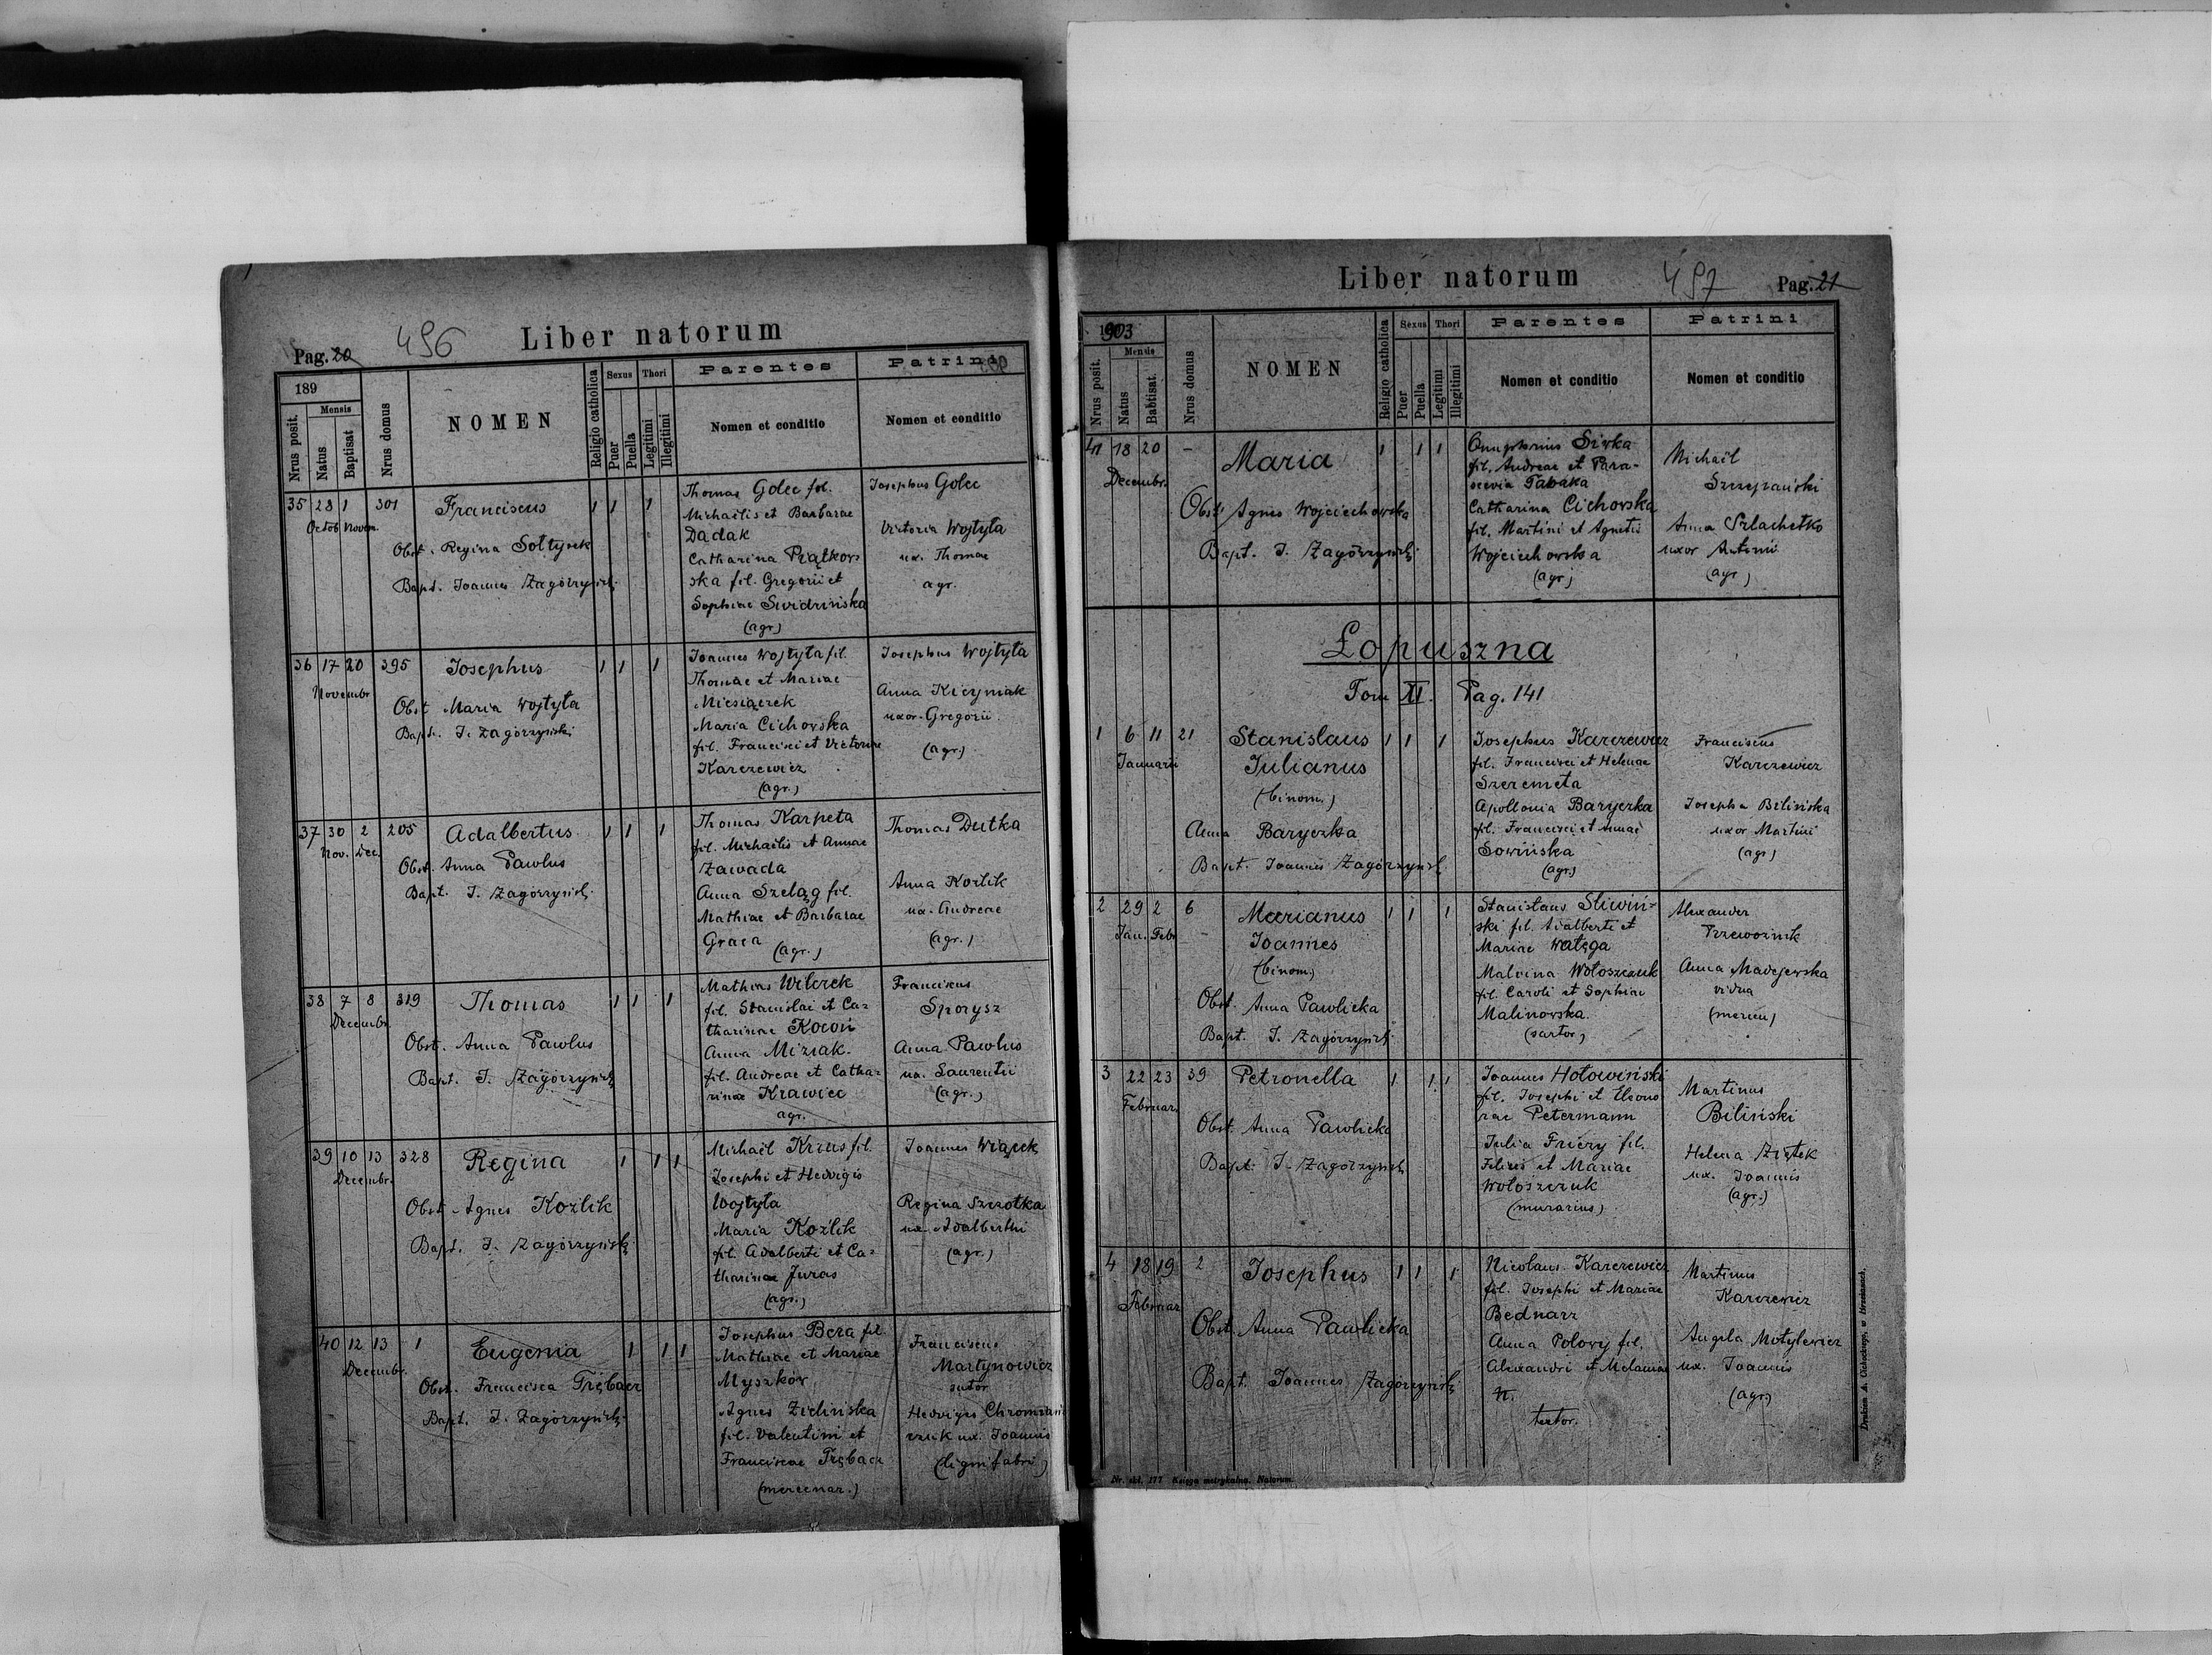 Pag. 20
496
Liber natorum
189
Nrus posit.
Mensis
Natus
Baptisat
Nrus domus
NOMEN
Religio catholica
Sexus
Puer
Puella
Thori
Legitimi
Illegitimi
Parentes
Nomen et conditio
Patrini
Nomen et conditio
35 28 1 301 Franciscus 1 1 1
Octob. Novem.
Obst. Regina Sołtysek
Bapt. Joannes Zagórzyński
Thomas Golec fil.
Michaelis et Barbarae
Dadak
Catharina Piątkow-
ska fil. Gregorii et
Sophiae Swidzińska
(agr)
Josephus Golec
Victoria Wojtyła
ux. Thomae
agr.
36 17 20 395 Josephus 1 1 1
Novembr
Obst Maria Wojtyła
Bapt. J. Zagórzyński
Joannes Wojtyła fil.
Thomae et Mariae
Miesiączek
Maria Cichowska
fil. Francisci et Victoriae
Karczewicz
(agr.)
Josephus Wojtyła
Anna Kicyniak
uxor Gregorii
(agr.)
37 30 2 205 Adalbertus 1 1 1
Nov. Dec.
Obst. Anna Pawlus
Bapt. J. Zagórzyński
Thomas Karpeta
fil. Michaelis et Annae
Zawada
Anna Szeląg fil.
Mathiae et Barbarae
Graca (agr.)
Thomas Dutka
Anna Kozlik
ux. Andreae
(agr.)
38 7 8 319 Thomas 1 1 1
Decembr.
Obst. Anna Pawlus
Bapt. J. Zagórzyński
Mathias Wilczek
fil. Stanislai et Ca-
tharinae Kocoń
Anna Miziak
fil. Andreae et Catha-
rinae Krawiec
agr.
Franciscus
Sporysz
Anna Pawlus
ux. Laurentii
(agr.)
39 10 13 328 Regina 1 1 1
Decembr.
Obst. Agnes Kozlik
Bapt. J. Zagórzyński
Michaël Krzus fil.
Josephi et Hedvigis
Wojtyla
Maria Kozlik
fil. Adalberti et Ca-
tharinae Juras
(agr.)
Joannes Wiącek
Regina Szczotka
ux. Adalberthi
(agr.)
40 12 13 1 Eugenia 1 1 1
Decembr.
Obst. Francisca Trębacz
Bapt. J. Zagórzyński
Josephus Bera fil
Mathiae et Mariae
Myszków
Agnes Zielińska
fil. Valentini et
Franciscae Trębacz
(mercenar.)
Franciscus
Martynowicz
sutor
Hedviges Chromian-
czuk ux. Joannis
(lignifabri)
Liber natorum
497
Pag. 21
1903
Nrus posit.
Mensis
Natus
Babtisat
Nrus domus
NOMEN
Religio catholica
Sexus
Puer
Puella
Thori
Legitimi
Illegitimi
Parentes
Nomen et conditio
Patrini
Nomen et conditio
41 18 20 - Maria 1 1 1
Decembr.
Obst. Agnes Wojciechowska
Bapt. J. Zagórzyński
Onuphrius Sirka
fil. Andreae et Para-
scevia Tabaka
Catharina Cichowska
fil. Martini et Agnetis
Wojciechowska
(agr)
Michaël
Szczepański
Anna Szlachetko
uxor Antonii
(agr)
Łopuszna
Tom XI. Pag. 141
1 6 11 21 Stanislaus 1 1 1
Januarii Julianus
(binom.)
Anna Baryczka
Bapt. Joannes Zagórzyński
Josephus Karczewicz
fil. Francisci et Helenae
Szeremeta
Apollonia Baryczka
fil. Francisci et Annae
Sowińska
(agr.)
Franciscus
Karczewicz
Josepha Bilińska
uxor Martini
(agr)
2 29 2 6 Marianus 1 1 1
Jan. Febr. - Joannes
(binom.)
Obst. Anna Pawlicka
Bapt. J. Zagórzyński
Stanislaus Sliwiń-
ski fil. Adalberti et
Mariae Watęga
Malvina Wołoszczuk
fil. Caroli et Sophiae
Malinowska
(sartor)
Alexander
Przewoźnik
Anna Madejewska
vidua
(mercen)
3 22 23 39 Petronella 1 1 1
Februar.
Obst. Anna Pawlicka
Bapt. J. Zagórzyński
Joannes Hołowiński
fil. Josephi et Eleono
rae Petermann
Julia Friery fil.
Felicis et Mariae
Wołoszczuk
(murarius)
Martinus
Biliński
Helena Ziętek
ux. Joannis
(agr.)
4 18 19 2 Josephus 1 1 1
Februar
Obst. Anna Pawlicka
Bapt. Joannes Zagórzyński
Nicolaus Karczewicz
fil. Josephi et Mariae
Bednarz
Anna Polowy fil.
Alexandri et Melaniae
N.
textor.
Martinus
Karczewicz
Angela Motylewicz
ux. Joannis
(agr)
Nr. skł. 177 Księga metrykalna. Natorum.